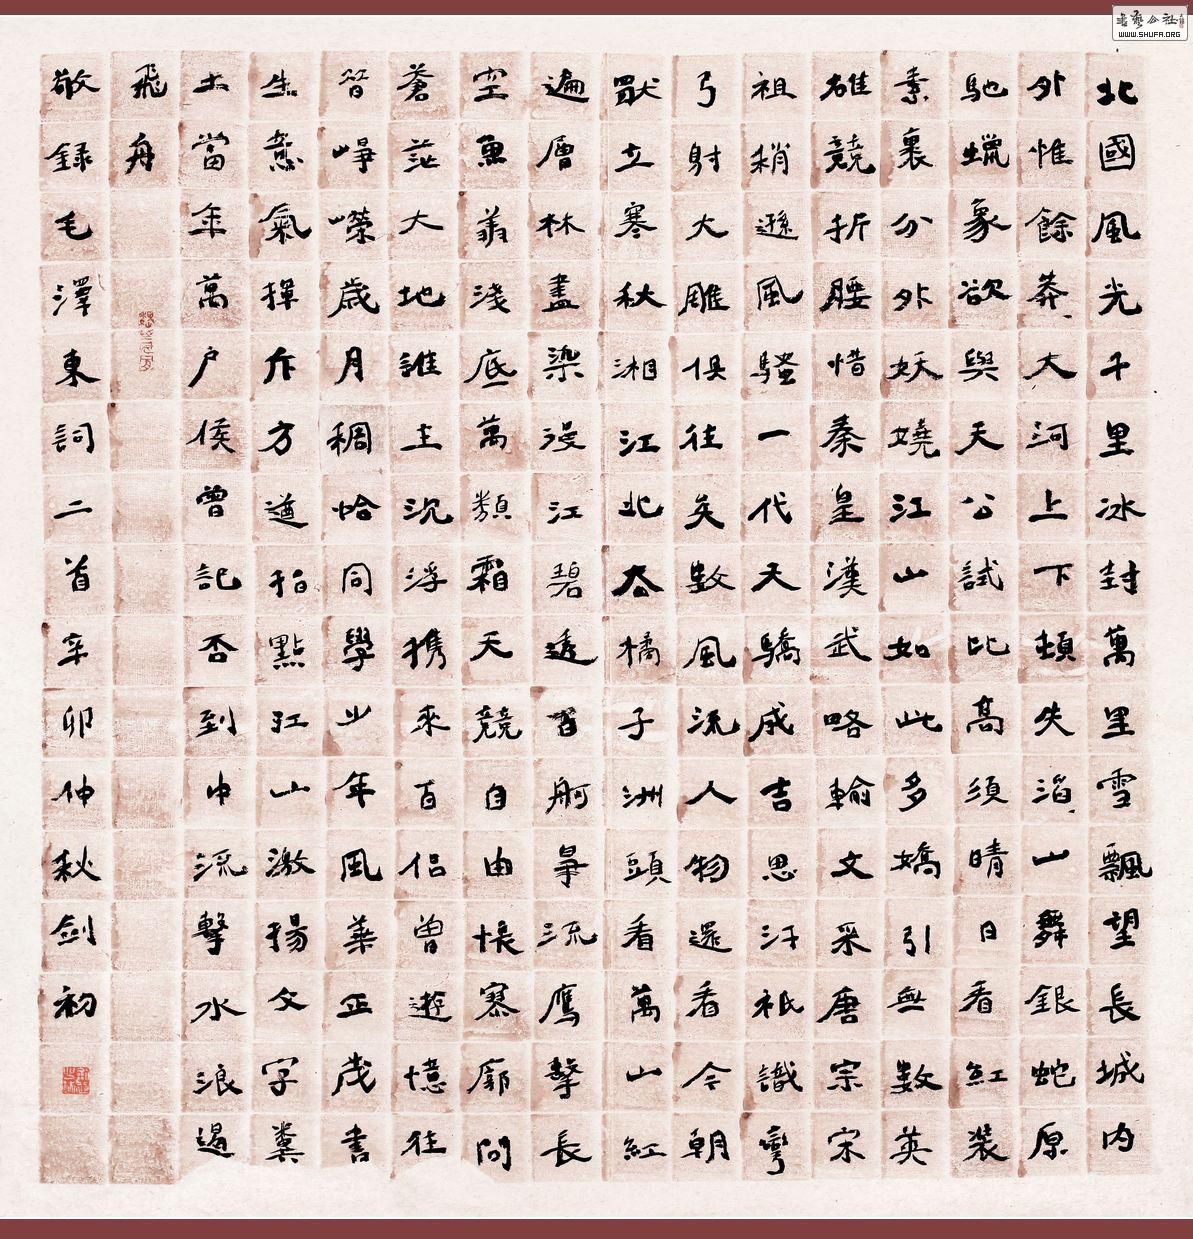 北國風光千里冰封萬里雪飄望長城内
外惟餘莽大河上下頓失滔山舞銀蛇原
馳蠟象欲與天公試比高須晴日看紅裝
素裹分外妖嬈江山如此多嬌引無數英
雄競折腰惜秦皇漢武略輸文采唐宗宋
祖稍遜風騷一代天驕成吉思汗衹識彎
弓射大雕俱往矣數風流人物還看今朝
獨立寒秋湘江北去橘子洲頭看萬山紅
遍層林盡染漫江碧透百舸爭流鷹擊長
空魚翔淺底萬類霜天競自由悵寥廓問
蒼茫大地誰主沉浮携來百侣曾遊憶往
昔崢嶸歲月稠恰同學少年風華正茂書
生意氣揮斥方遒指點江山激揚文字糞
土當年萬户侯曾記否到中流擊水浪遏
飛舟
敬録毛澤東詞二首辛卯仲秋剑初
書藝公社
WWW.SHUFA.ORG